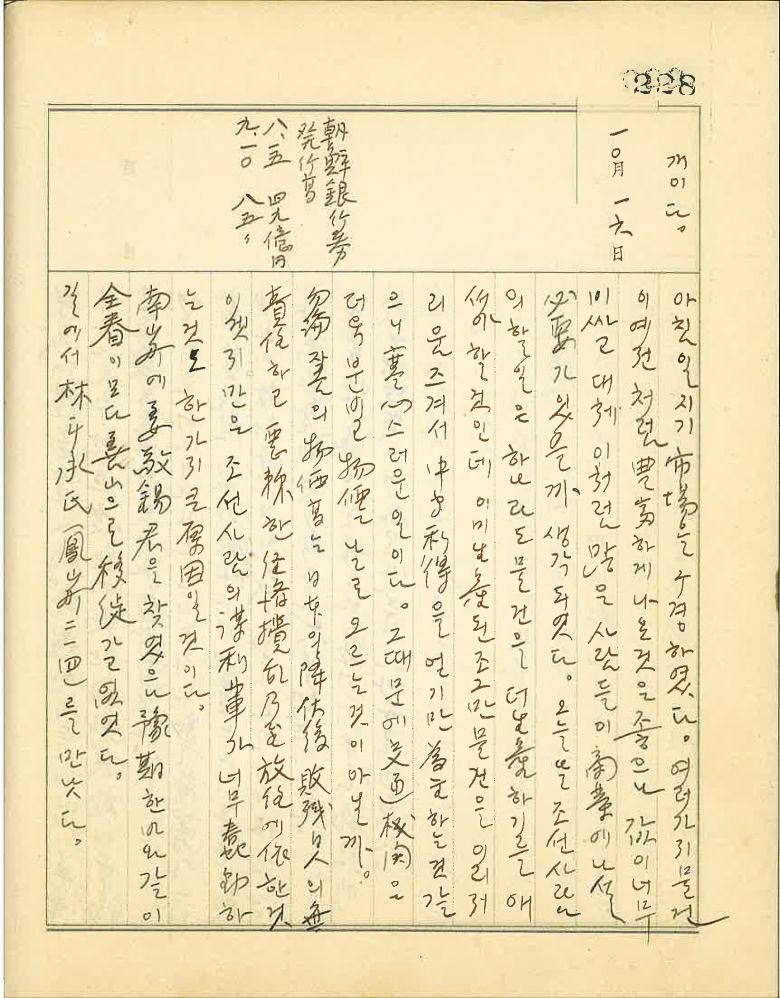 228
개이다。
一〇月 一六日
朝鮮銀行券
発行高
八.一五 四九億円
九.一〇 八五〃
아친일지기 市場을 구경하였다。여러가지물건
이예전처럼 豊富하게나온것은좋으나 값이너무
비싸고 대체 이처럼많은 사람들이 商業에나설
必要가있을까 생각되였다。오늘날 조선사람
의할일은 하나라도물건을 더生産하기를 애
써야할것인데 이미生産된조그만물건을 이리저
리 옴즈겨서 中間利得을 얻기만 爲主하는것같
으니 寒心스러운일이다。그때문에交通機関은
더욱 분빌고 物價는날로 오르는것이아닐까。
勿論 終의 物価高는 日本의降伏後 敗殘日人의無
責任하고 惡辣한 経済攪乱乃至放任에依한것
이겟지만은 조선사람의謀利輩가 너무蠢動하
는것도 한가지큰原因일것이다。
南岸에姜敬錫君을찾엇으나 豫期한바와같이
全春이모다 長山으로移徙가고없엇다。
길에서 林斗承氏(鳳岸二一四)를만낫다。